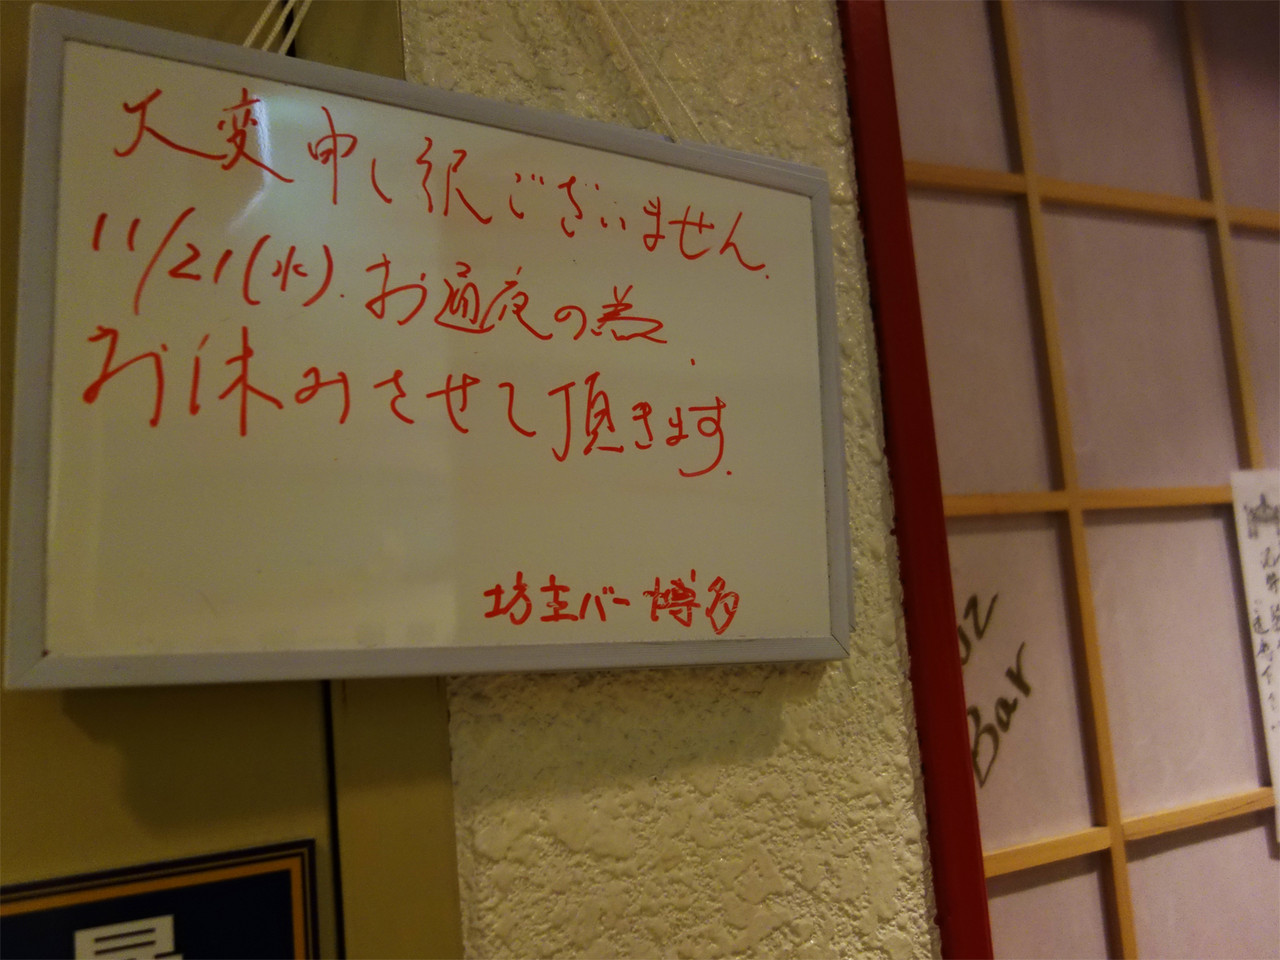 大変申し訳ございません.
11/21(水). お通夜の為、
お休みさせて頂きます.
坊主バー博多
oz
Bar